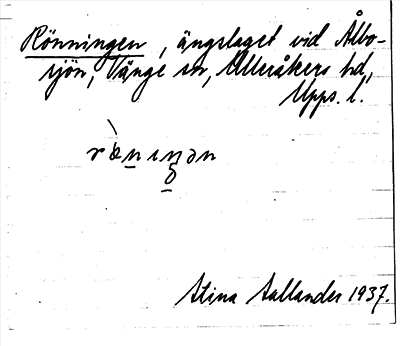 Rönningen, ängslaget vid Ålbo-
sjön, Vänge sn, Ulleråkers hd,
Upps. l.
Stina Sallander 1937.